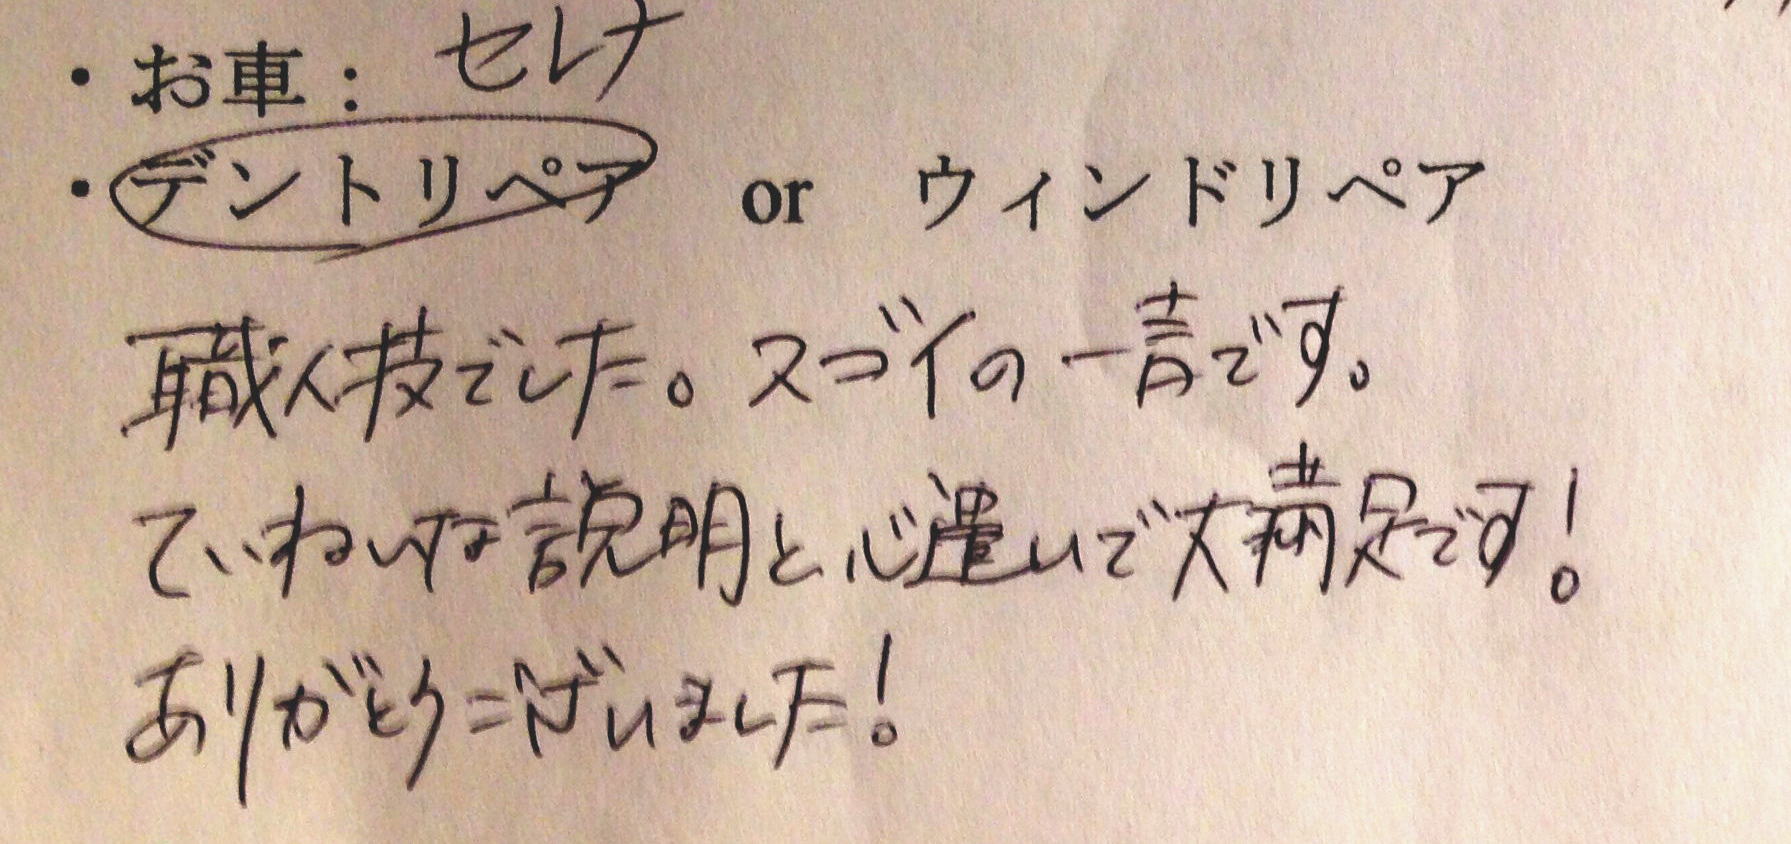 ・お車： セレナ
・デントリペア or ウィンドリペア
職人技でした。スゴイの一言です。
ていねいな説明と心遣いで大満足です！
ありがとうございました！